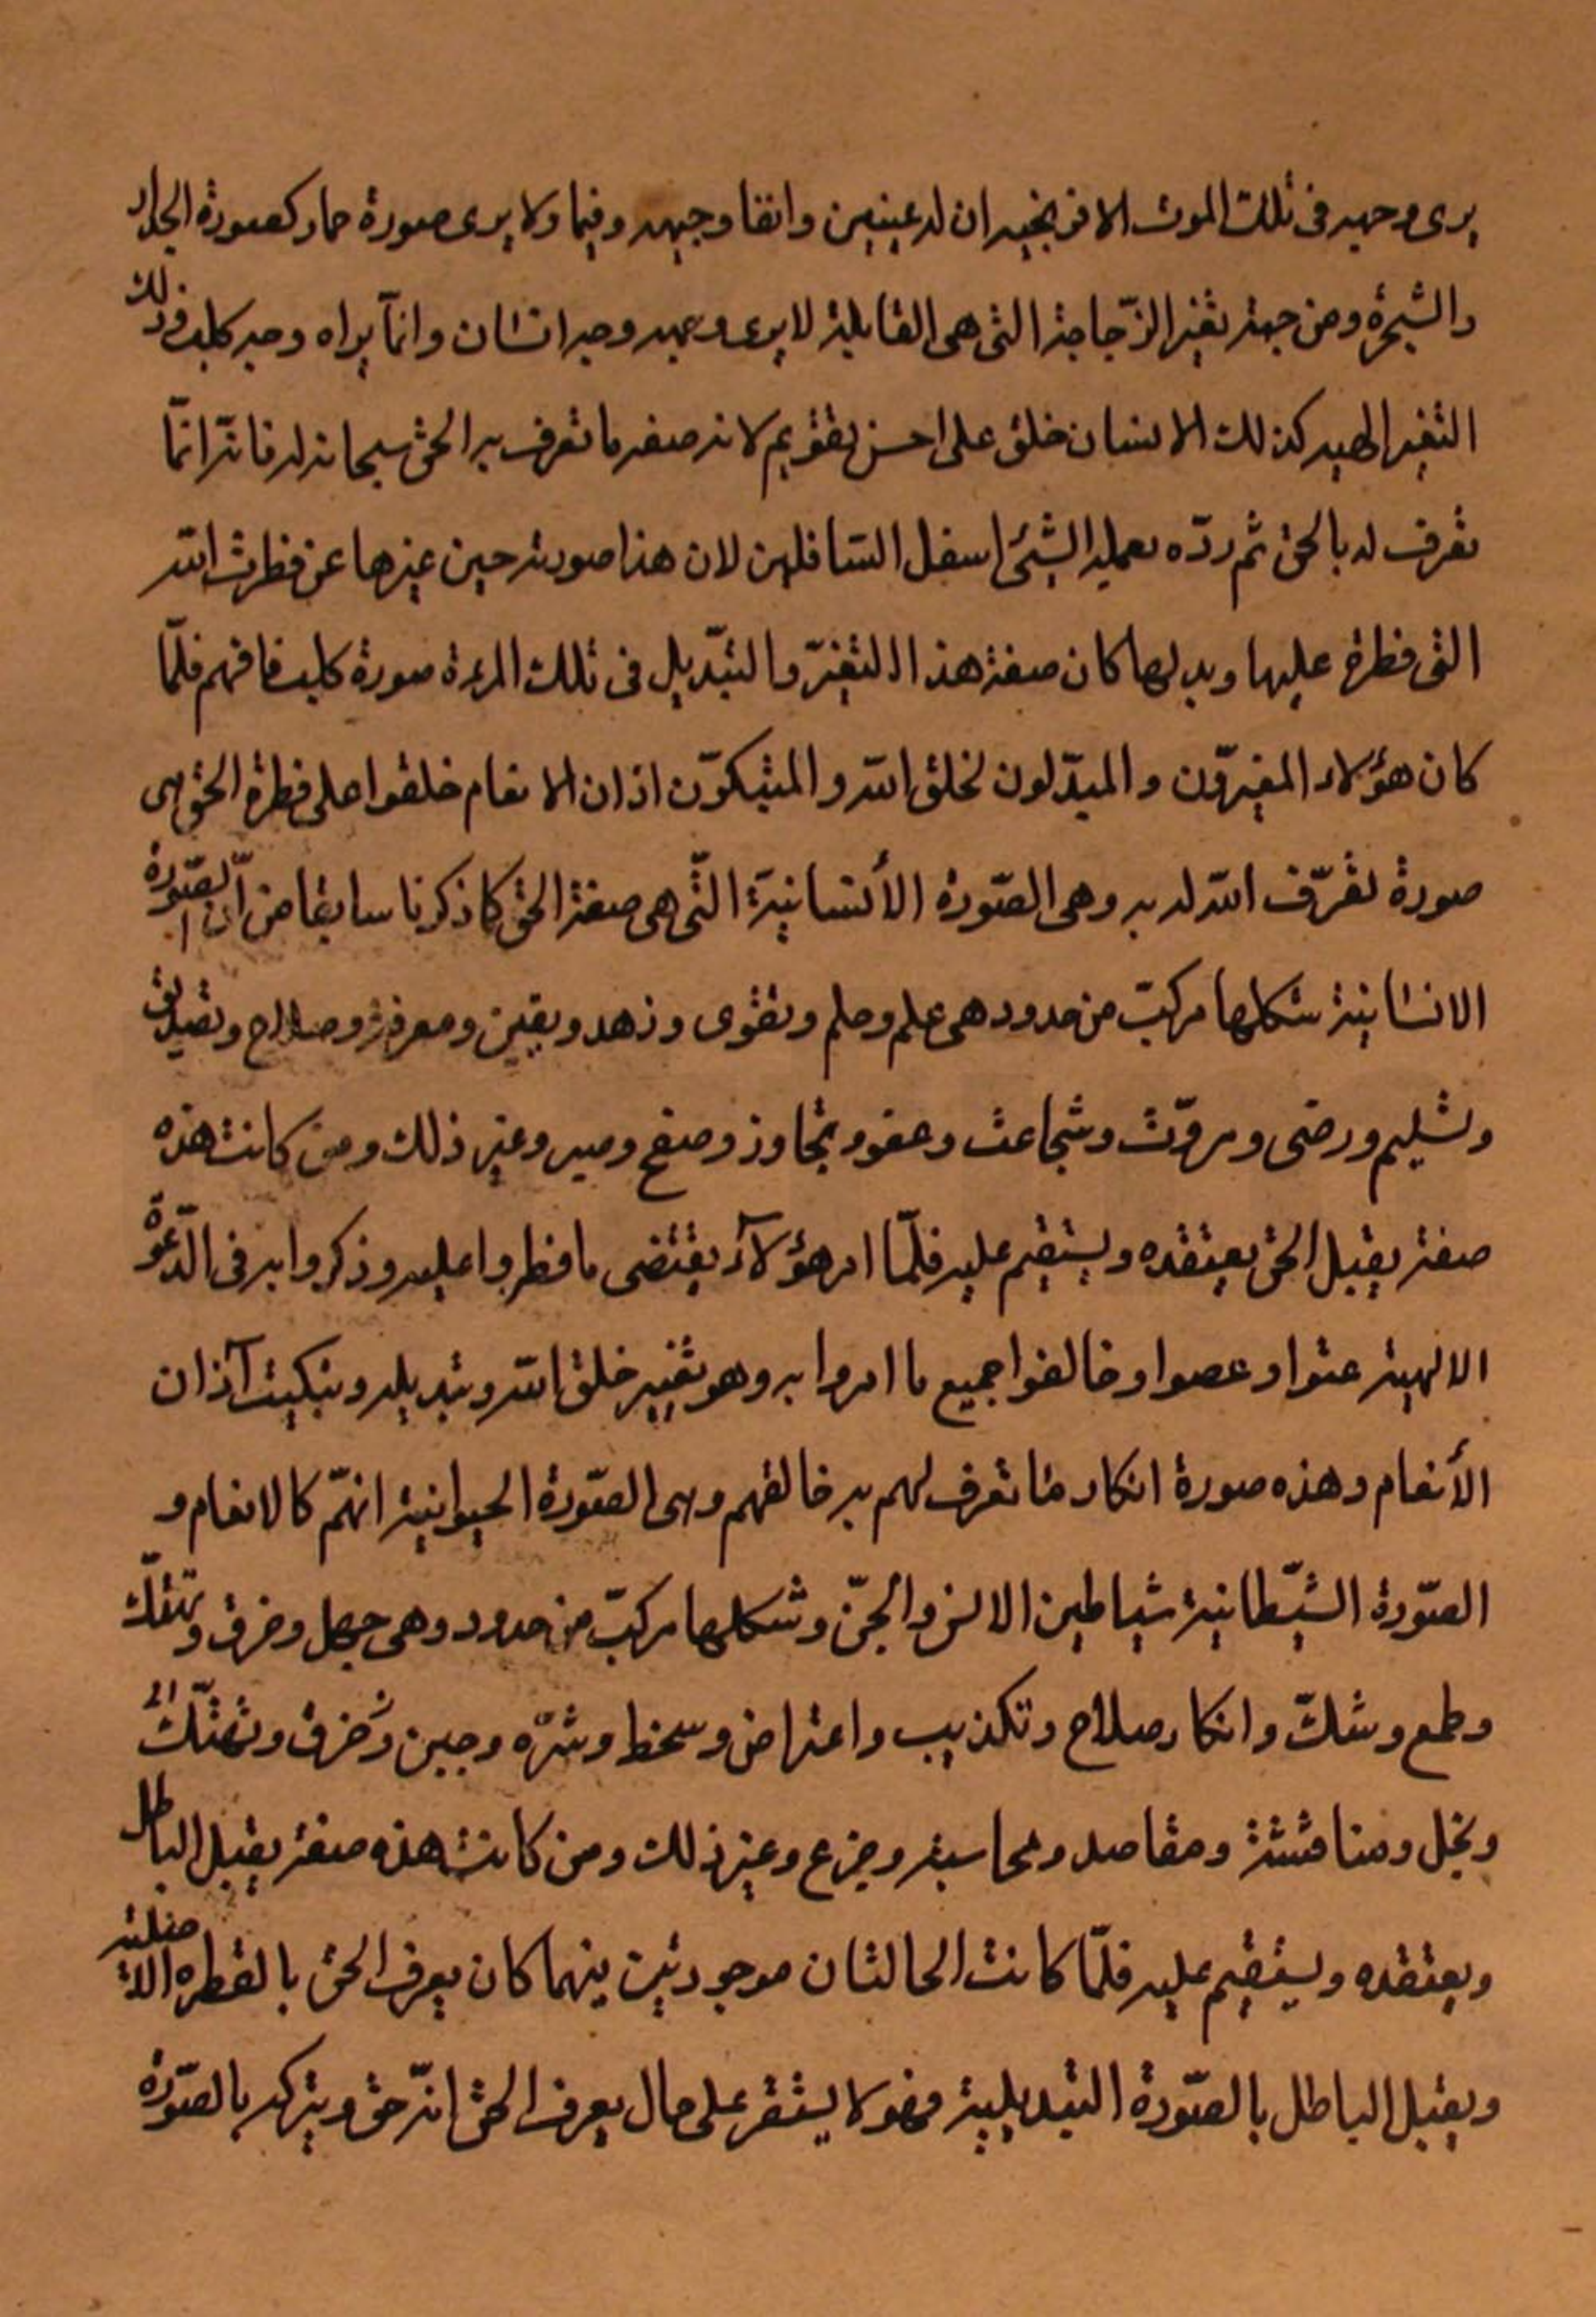 يرى وجهه في تلك الموت الافرنجيه ان له عينين وانفا وجبهه وفيما ولا يرى صورة حمار كصورة الجدار
والشجرة ومن جهة تغير الزّجاجة التي هي القابلية لا يرى وجهه وجه انسان وانمّا يراه وجه كلب وذلك
التغير الهيه كذلك الانسان خلق على احسن تقويم لانه صفه ما تعرف به الحق سبحانه له فانّه انمّا
تعرف له بالحق ثم ردّه بعمله الشيئ اسفل السّافلين لان هذا صورته حين غيرها عن فطرت الله
التي فطره عليها وبدلها كان صفة هذا التغيّر والتبّديل في تلك المرءة صورة كلب فافهم فلمّا
كان هؤلاء المغيرّون والمبدّلون لخلق الله والمبتكوّن اذان الانعام خلقوا على فطرة الحق هى
صورة تعّرف الله له به وهى الصّورة الأنسانيّة التّى هى صفة الحق كما ذكرنا سابقا من انّ الصّورة
الانسانية شكلها مركبّ من حدود هى علم وحلم وتقوى وزهد ويقين ومعرفة وصلاح وتصديق
وتسليم ورضى ومروّت وشجاعت وعفو وتجاوز وصفح وصبر وغير ذلك ومن كانت هذه
صفته يقبل الحق يعتقده ويستقيم عليه فلمّا امر هؤلآء بمقتضى ما فطروا عليه وذكروا به فى الدّعوة
الالهية عتوا وعصوا وخالفوا جميع ما امروا به وهو تغيير خلق الله وتبديله وتبكيت آذان
الأنعام وهذه صورة انكار ما تعرف لهم به خالقهم وهى الصّورة الحيوانية انهمّ كالانعام و
الصّورة الشيّطانية شياطين الانس والجنّ وشكلها مركبّ من حدود وهى جهل وخرق وتهتّك
وطمع وشكّ وانكار صلاح وتكذيب واعتراض وسخط وشرّه وجبن وخرق وتهتّك
وبخل ومناقشة ومقاصد ومحاسبة وجزع وغير ذلك ومن كانت هذه صفته يقبل الباطل
ويعتقده ويستقيم عليه فلمّا كانت الحالتان موجودتين فيهما كان يعرف الحق بالفطره الاصليه
ويقبل الباطل بالصّورة التبديلية فهو لا يستقر على حال يعرف الحق انّه حق ويتركه بالصّورة